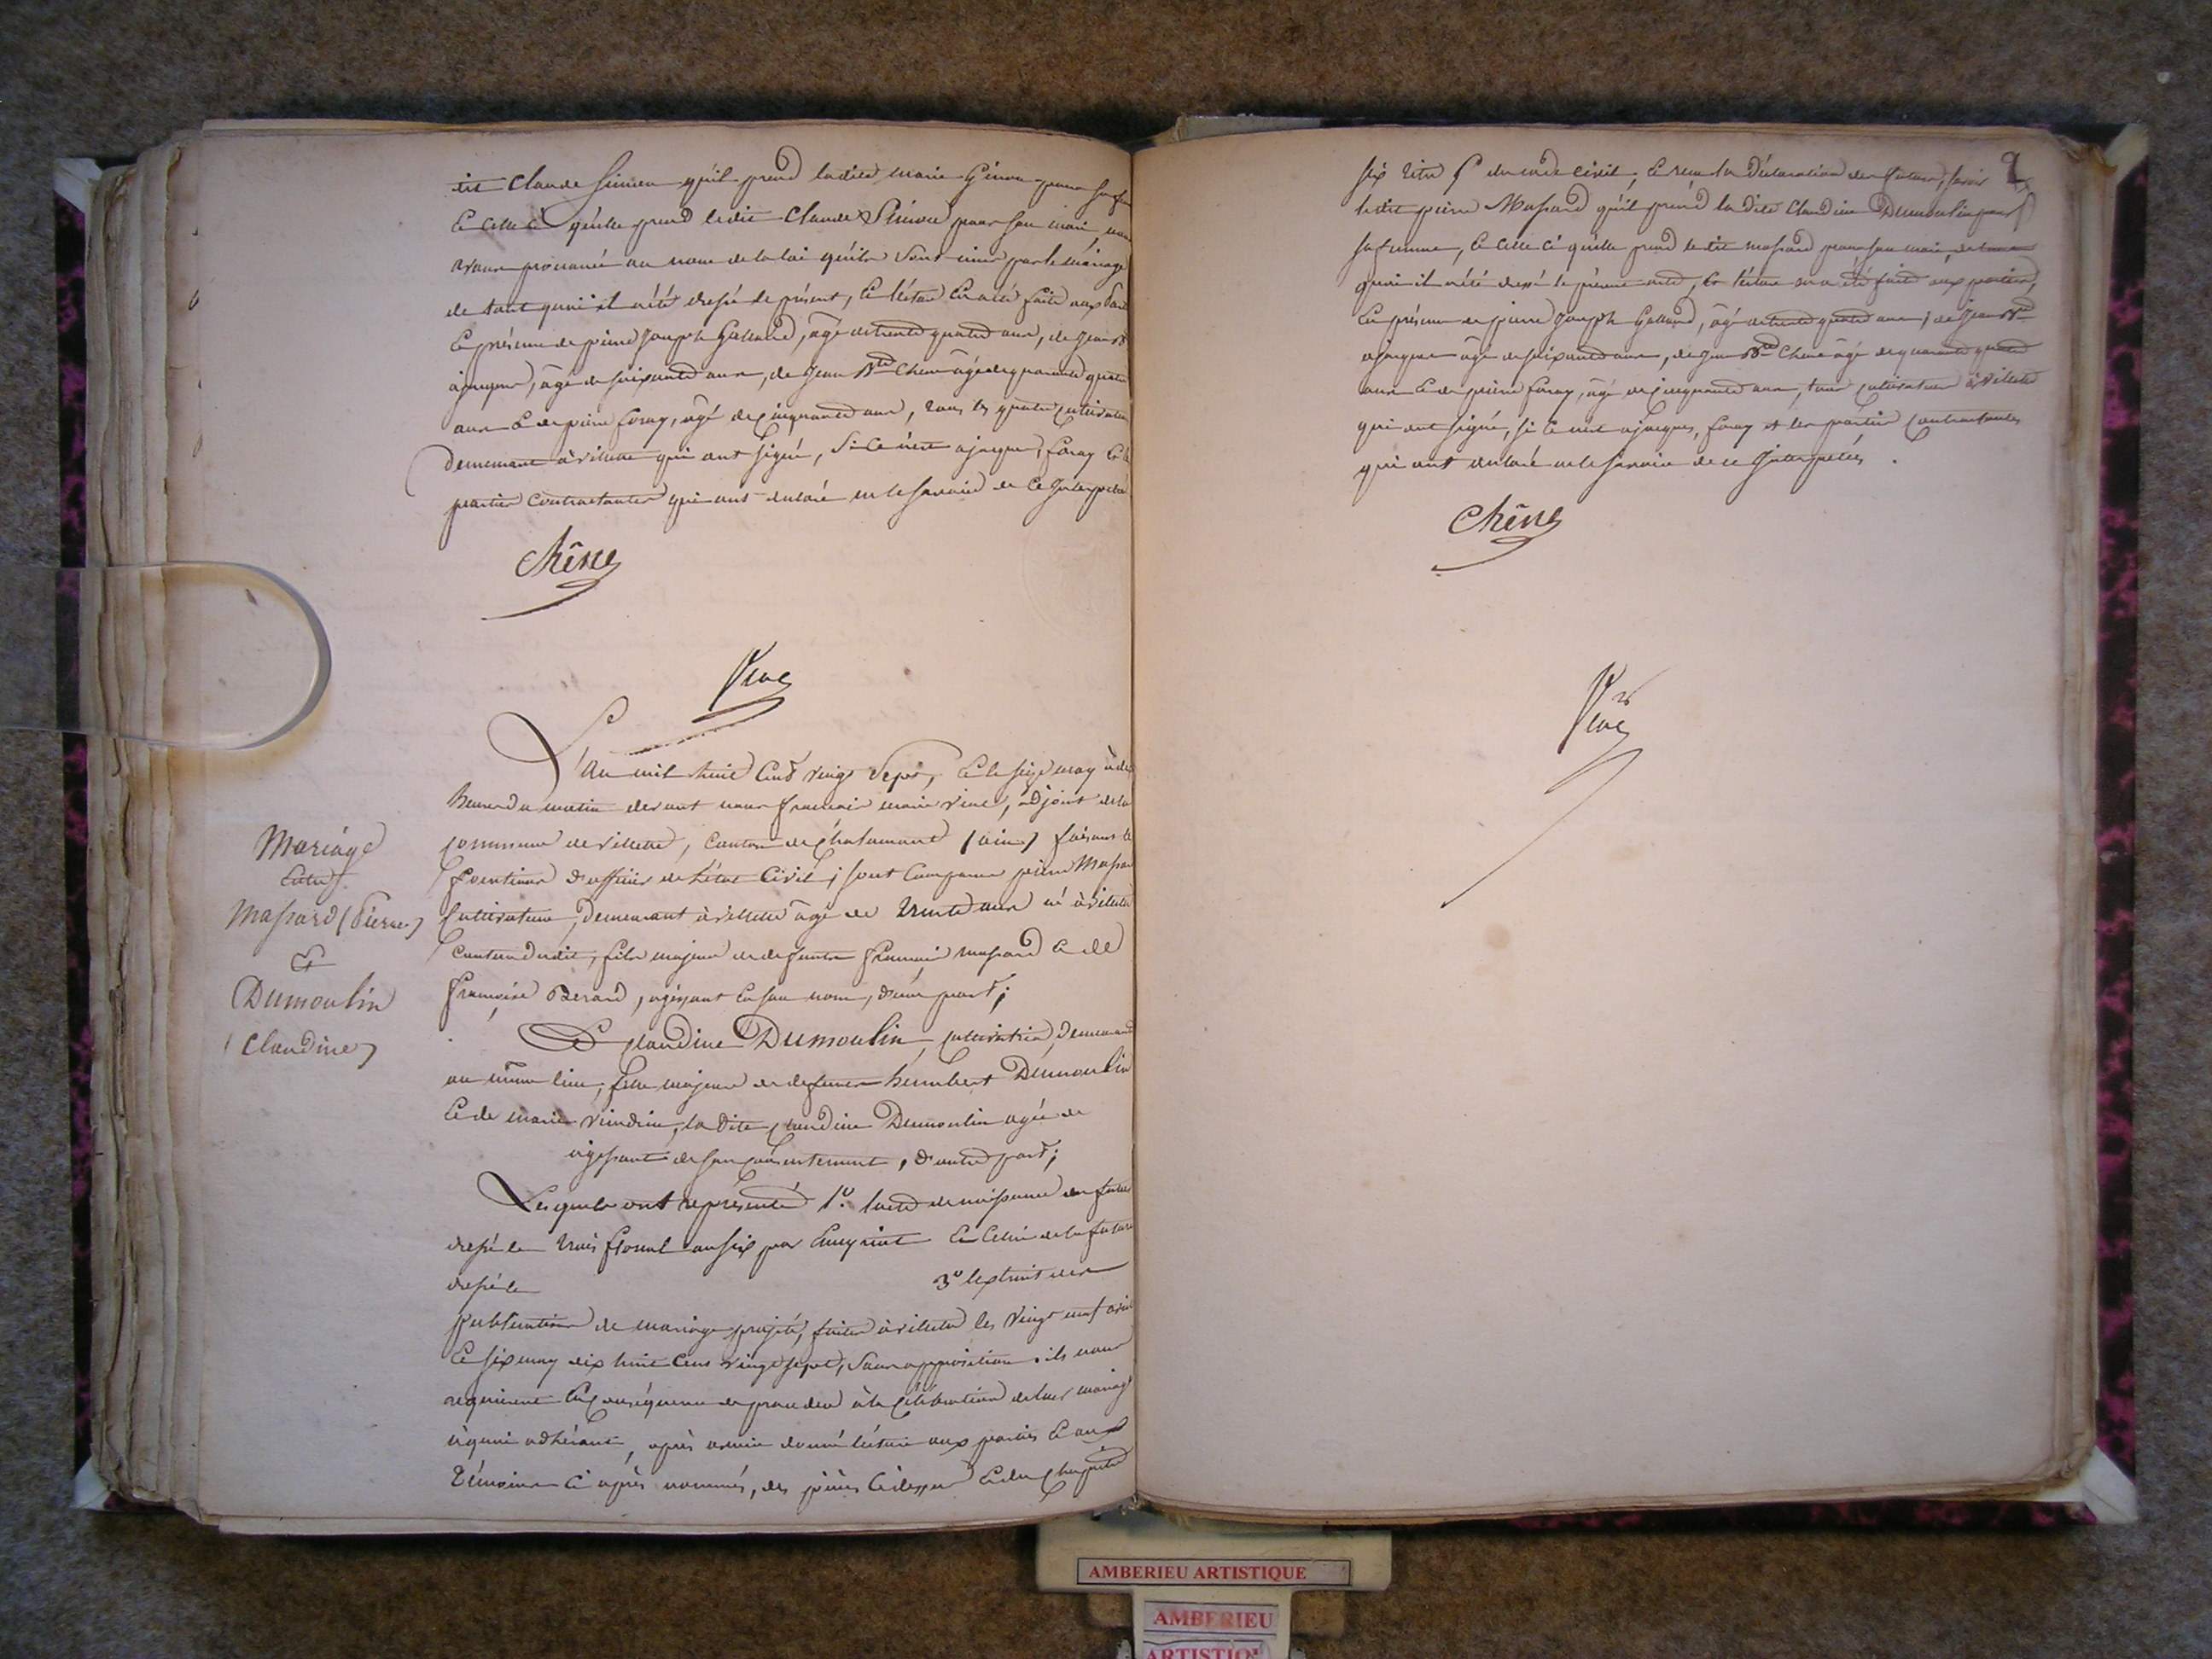 dit Claude Simon qu'il prend ladite marie Girou pour sa
Et celle ci qu'elle prend le dit Claude Simon pour son mari, nous
avons prononcé au nom de la loi qu'ils sont unis par le mariage
de tout quoi il a été dressé le présent, et lecture en a été faite aux
En présence de pierre Joseph Galland, âgé de trente quatre ans, de Jean
ajacques, âgé de soixante ans, de Jean Bte Chene âgé de quarante quatre
ans et de pierre foray, âgé de cinquante ans, tous les quatre cultivateurs
Demeurant à villette qui ont signé, si ce n'est ajacques, foray et les
parties contractantes qui ont déclaré ne le savoir de ce interpellés
Chêne
Vial
L'An mil huit Cent vingt sept, et le seize may à dix
heures du matin devant nous françois marie vial, adjoint de la
commune de villette, canton de Chalamont (ain) faisant les
fonctions d'officier de l'état civil; sont comparus pierre Massard
Cultivateur, Demeurant à villette âgé de trente ans né à villette
Canton dudit, fils majeur de defunt françois massard et de
françoise Berard, agissant en son nom, d'une part;
Et Claudine Dumoulin, cultivatrice, demeurant
au même lieu, fille majeure de defunt humbert Dumoulin
Et de marie, la dite Claudine Dumoulin agée de
agissant de son consentement, d'autre part;
Lesquels ont représenté 1º. l'acte de naissance du futur
dressé le trois floreal an six par et celui de la future
dressé le 3º l'extrait des
publications de mariage projeté, faites à villette les vingt neuf avril
Et six may dix huit cent vingt sept, sans opposition. ils nous
requierent en conséquence de procéder à la célébration de leur mariage
à quoi adhérant, après avoir donné lecture aux parties et aux
témoins ci après nommés, des pièces ci dessus et du chapitre
Mariage
Entre
Massard (Pierre)
&
Dumoulin
(Claudine)
2
six titre 5 du code civil, et reçu la déclaration des futurs, savoir
ledit pierre Massard qu'il prend la dite Claudine Dumoulin pour
sa femme, et celle ci qu'elle prend le dit massard pour son mari, de tout
quoi il a été dressé le présent acte, et lecture en a été faite aux parties,
En présence de pierre Joseph Galland, âgé de trente quatre ans, de Jean Bte
ajacques âgé de soixante ans, de Jean Bte Chene âgé de quarante quatre
ans et de pierre foray, âgé de cinquante ans, tous cultivateurs à villette
qui ont signé, si ce n'est ajacques, foray et les parties contractantes
qui ont déclaré ne le savoir de ce interpellés.
Chêne
Vial